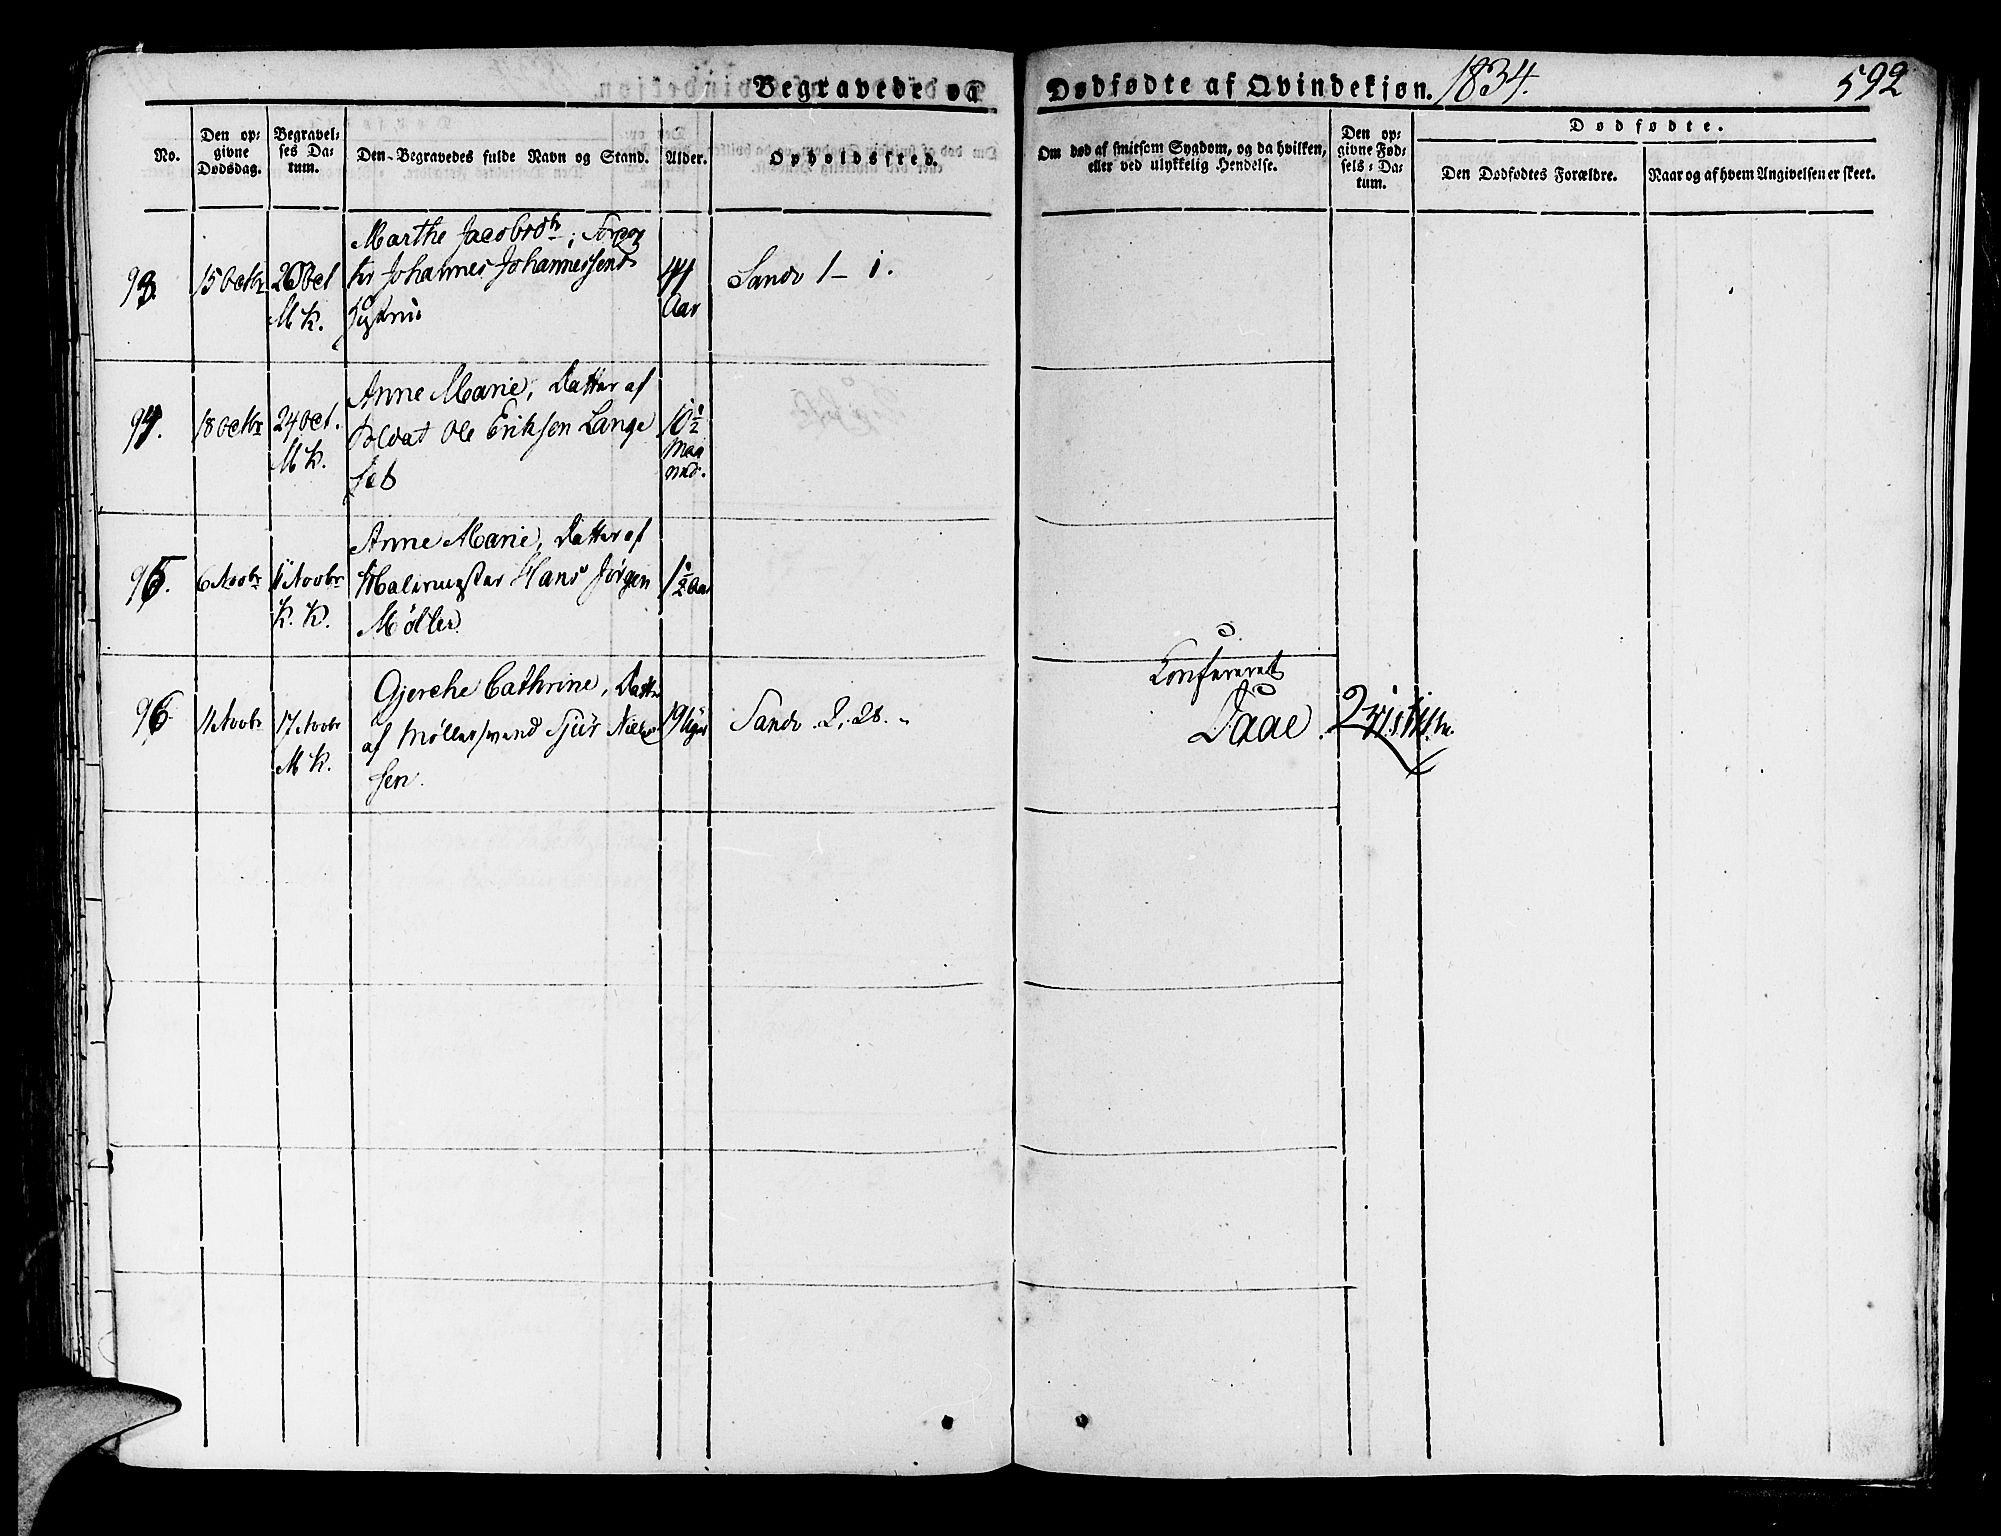 Begravede og Dødfødte af Qvindekjøn. 1834. 592
No.
Den op-
givne
Dødsdag.
Begravel-
ses Da-
tum.
Den Begravedes fulde Navn og Stand.
Alder.
Opholdssted.
Om død af smitsom Sygdom, og da hvilken,
eller ved ulykkelig Hendelse.
Den op-
givne Fød-
sels-Da-
tum.
Dødfødte.
Den Dødfødtes Forældre.
Naar og af hvem Angivelsen er skeet.
93.
15 Octbr
26 Oct
M K.
Marthe Jacobsdtr;
Johannes Johannessens
44
Aar
Sandv 1 - 1.
94.
18 Octbr
24 Oct.
M K.
Anne Marie, Datter af
Soldat Ole Eriksen Lange
sæb
10 1/2
Maa
ned.
95.
6 Novbr
11 Novbr
K. K.
Anne Marie, Datter af
Malermester Hans Jørgen
Møller.
1 1/2 Aar
96.
11 Novbr
17 Novbr
M K.
Gjerche Cathrine, Datter
af Møllersvend Sjur Niel
sen.
19 Uger
Sandv. 2. 28.
Konfereret
Daae.